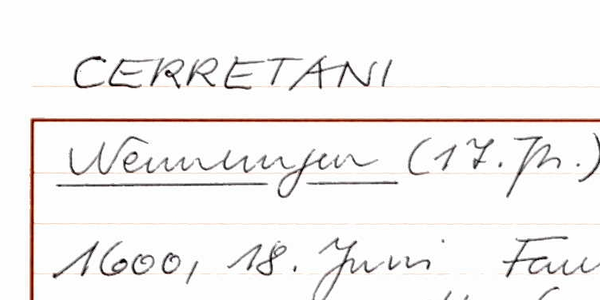 CERRETANI
Nennungen (17. Jh.)
1600, 18. Juni